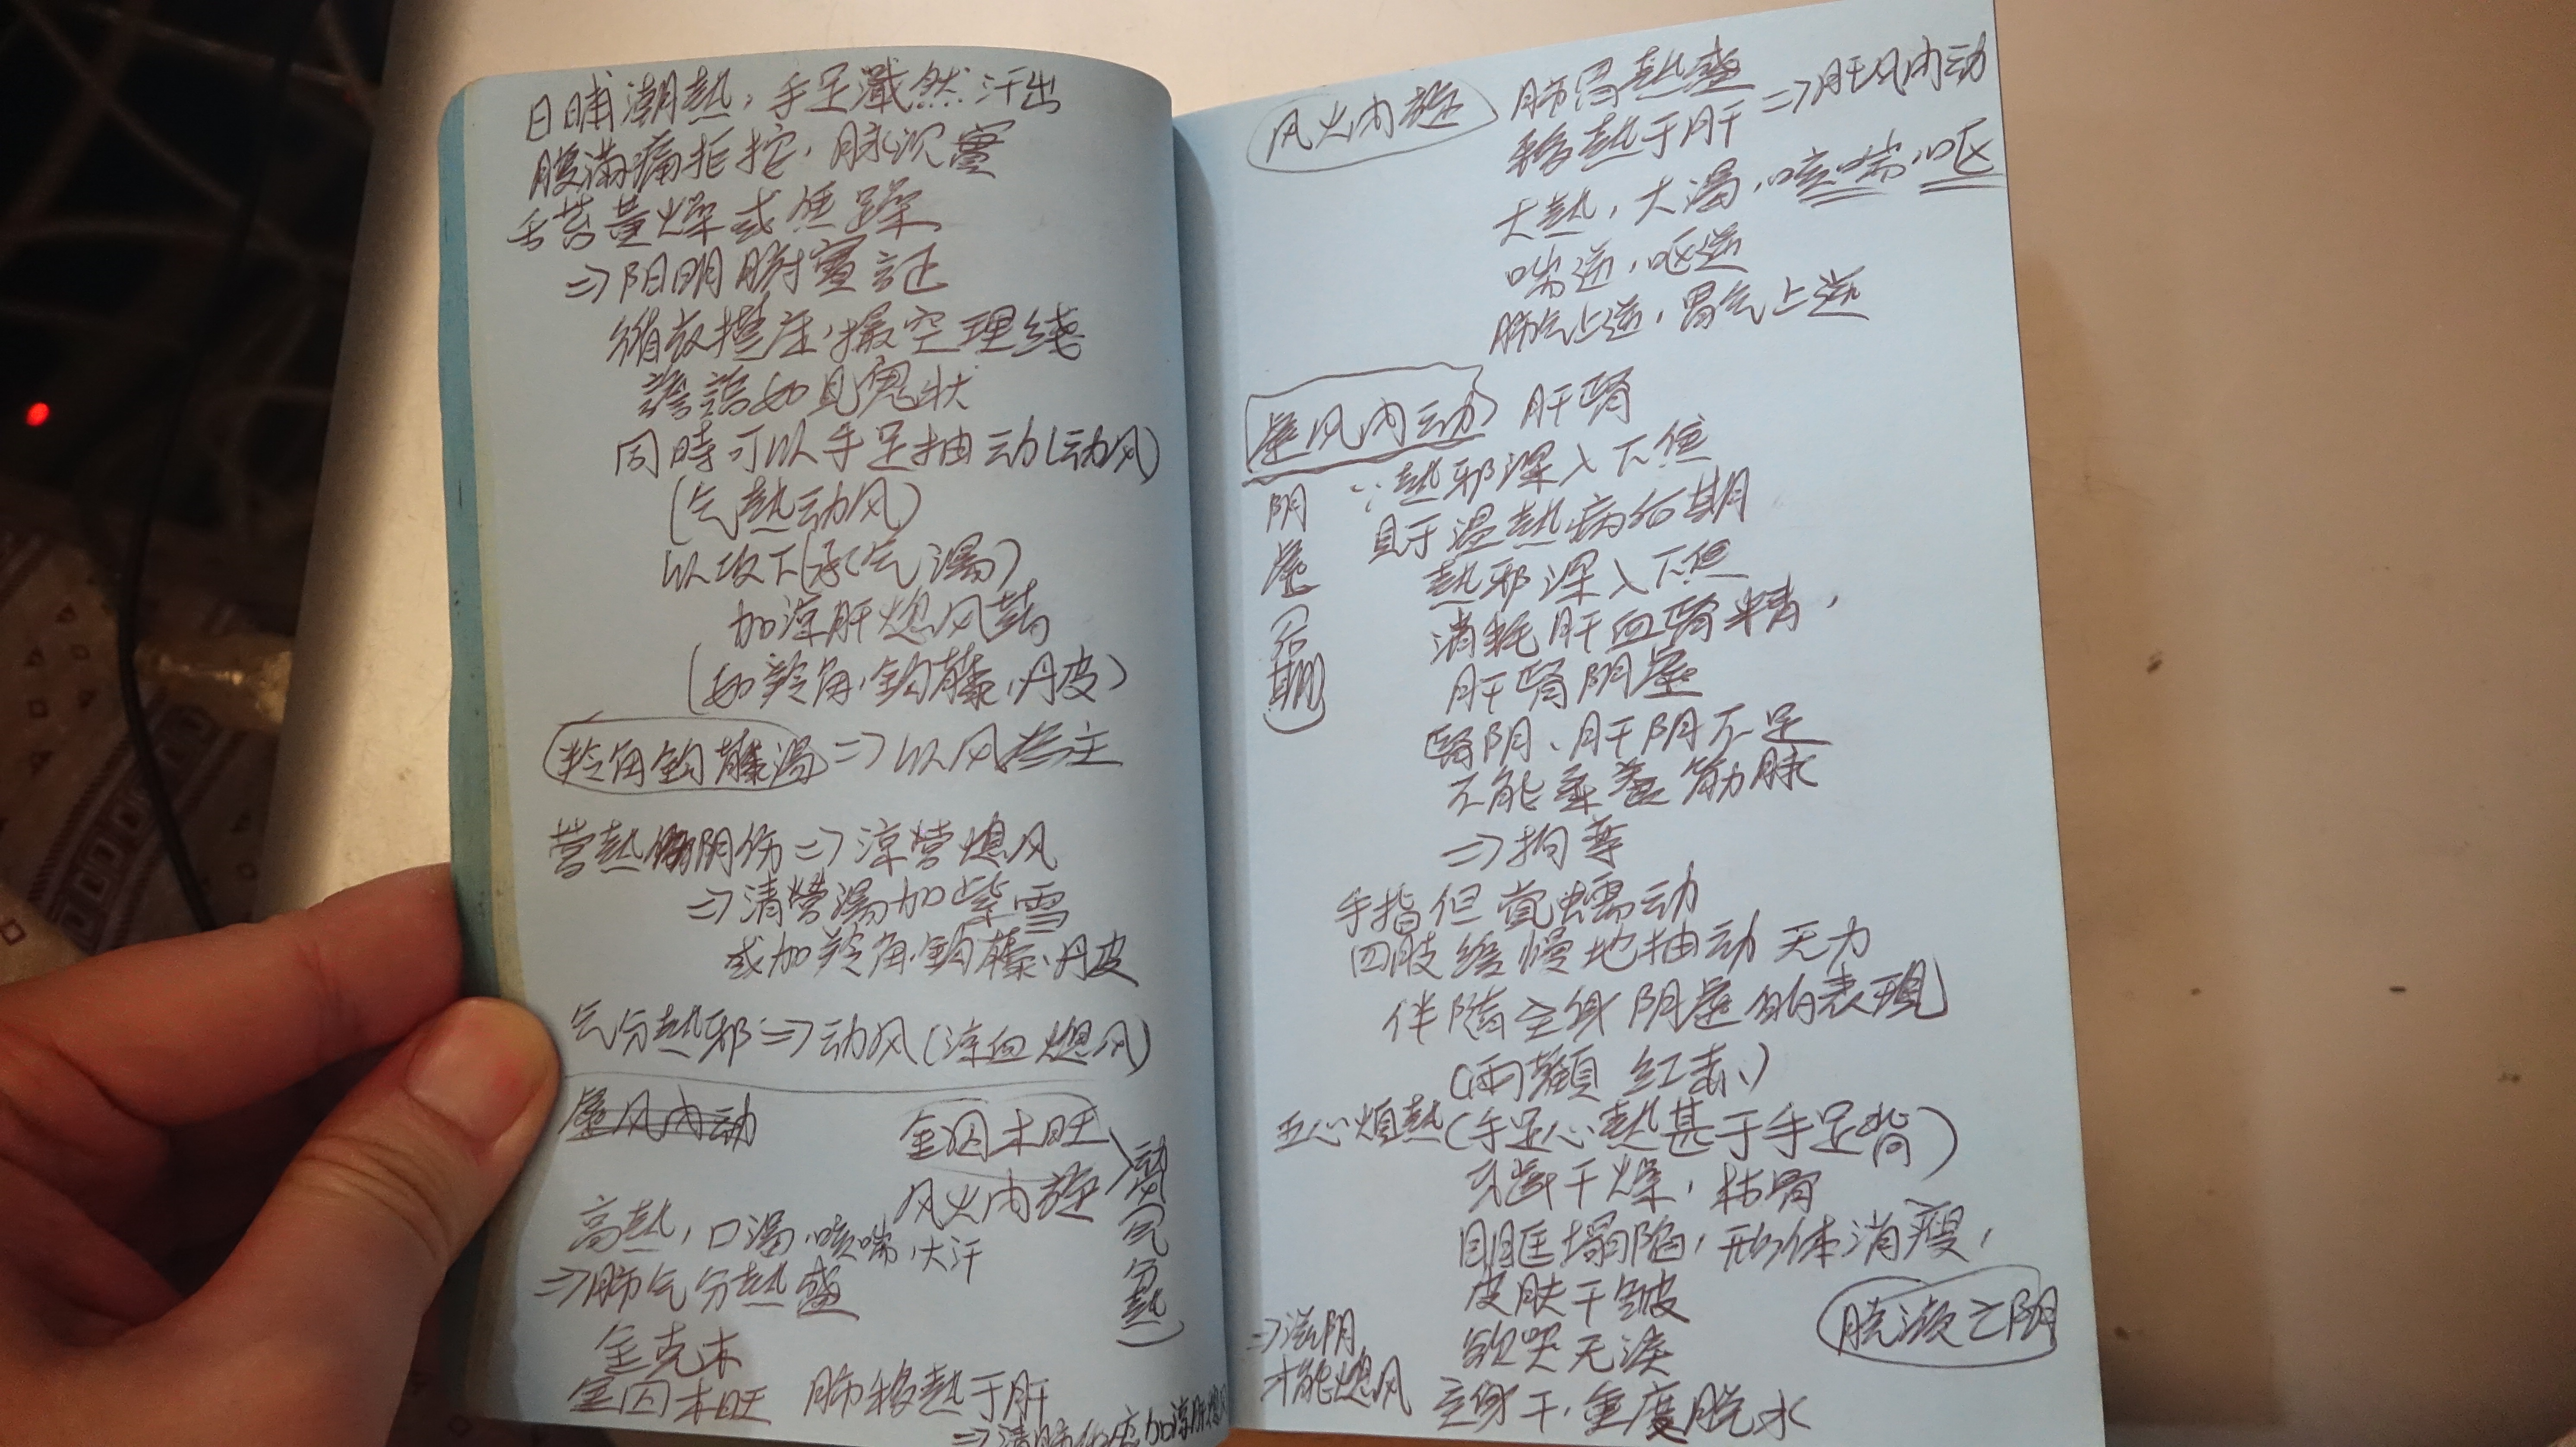 日晡潮熱，手足濈然汗出
腹满痛拒按，脉沉實
舌苔黃燥或焦躁
⇒阳明腑實証
循衣摸床，撮空理线
譫語如見鬼状
同時可以手足抽动(动风)
(气熱动风)
以攻下(承气湯)
加凉肝熄风药
(如羚角,鈎藤,丹皮)
羚角鈎藤湯⇒以风为主
营熱阴伤⇒凉营熄风
⇒清营湯加紫雪
或加羚角,鈎藤、丹皮
气分熱邪⇒动风(凉血熄风)
虛风内动
金囚木旺
风火内旋
高熱，口渴，咳喘，大汗
⇒肺气分熱盛
金克木
金囚木旺 肺移熱于肝
加凉肝熄风
(属气分熱)
风火内旋
肺胃熱盛
移熱于肝⇒肝风内动
大熱，大渴，咳喘,呕
喘逆，呕逆
肺气上逆，胃气上逆
虛风内动 肝腎
∵熱邪深入下焦
阴虛(后期)
見于温熱病后期
熱邪深入下焦
消耗肝血腎精，
肝腎阴虛
腎阴、肝阴不足
不能濡養筋脉
⇒拘挛
手指但覚蠕动
四肢缓慢地抽动无力
伴随全身阴虛的表現
(兩顴红赤)
五心煩熱(手足心熱甚于手足背)
牙齒干燥，枯骨
目眶塌陷，形体消瘦，
皮肤干皱
欲哭无淚
全身干,重度脱水
⇒滋阴
才能熄风